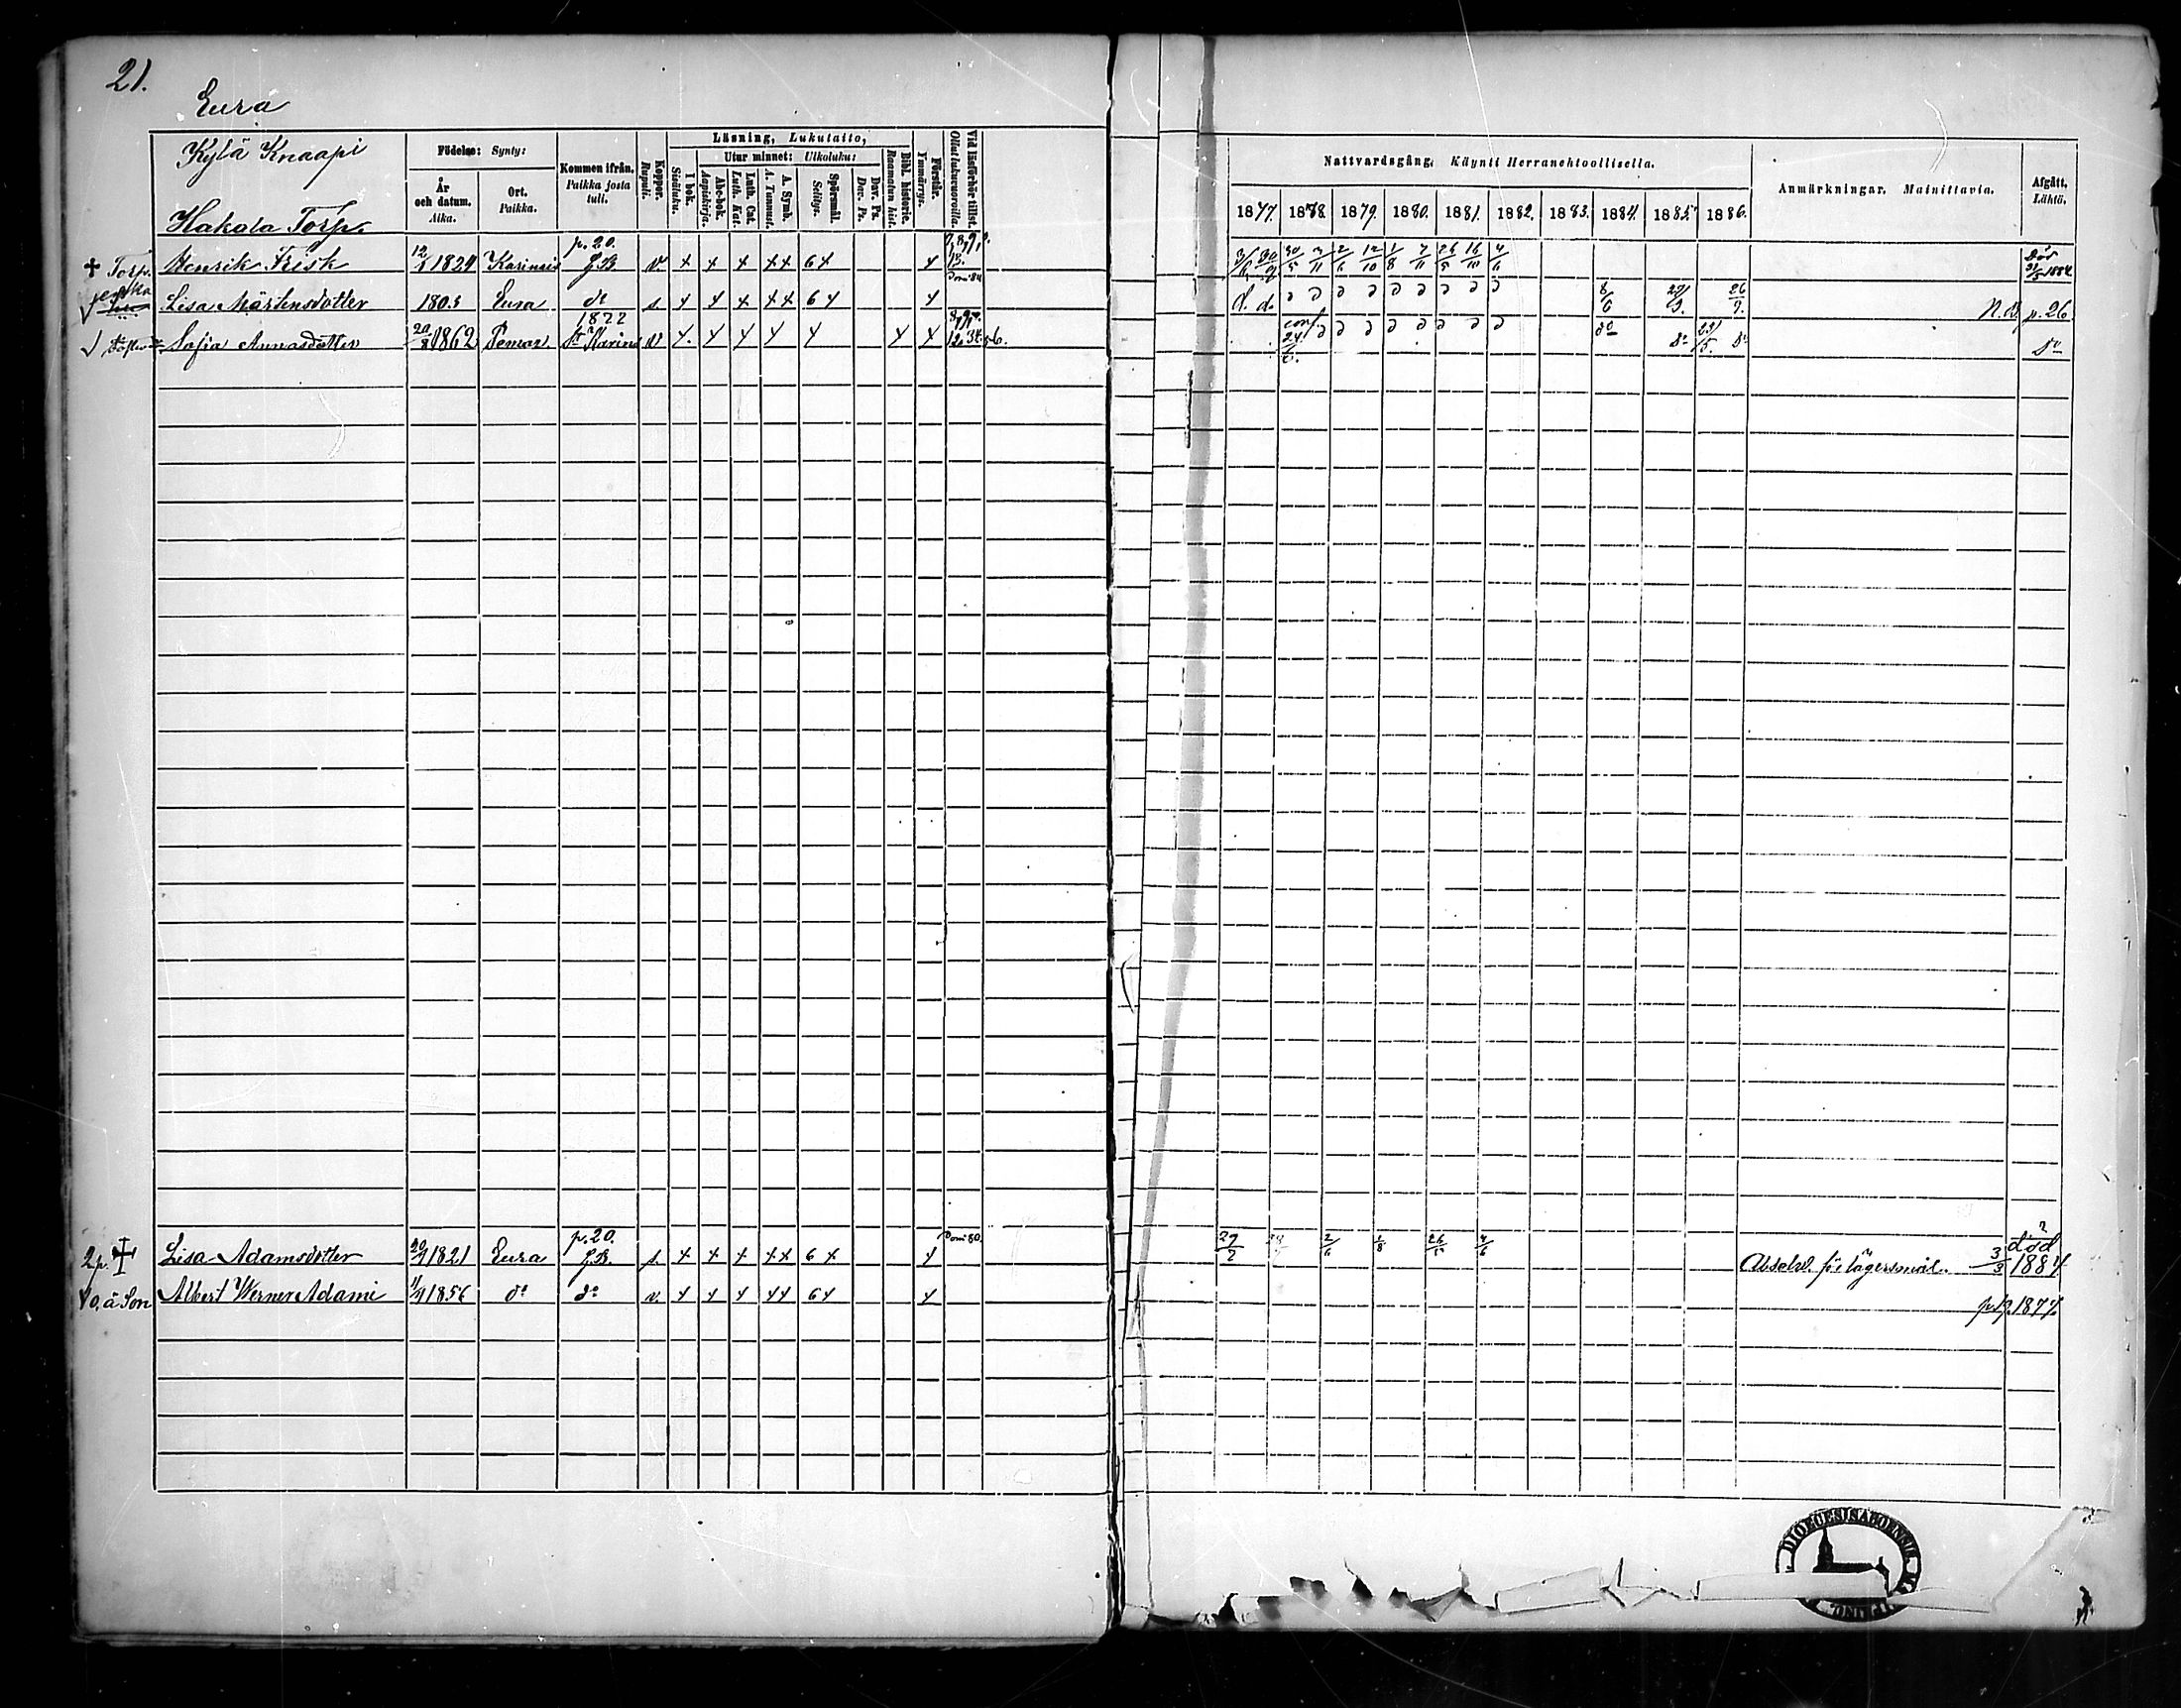 21.
Eura
Kylä Knaapi
Hakala Torp.
Födelse: Synty:
År och datum. Aika.
Ort. Paikka.
Kommen ifrån. Paikka josta tuli.
Koppor. Rupuli.
Läsning, Lukutaito,
I bok. Sisäluku.
Utur minnet: Ulkoluku:
Abc-bok. Aapiskirja.
Luth. Cat. Luth. Kat.
A. Symb. A. Tunnust.
Spörsmål. Selitys.
Dav. Ps. Dav. Ps.
Bibl. historie. Raamatun hist.
Förstår. Ymmärrys.
Vid läsförhör tillst. Ollut lukuvuoroilla.
Nattvardsgång. Käynti Herranehtoollisella.
1877. 1878. 1879. 1880. 1881. 1882. 1883. 1884. 1885. 1886.
Anmärkningar. Mainittavia.
Afgått. Lähtö.
p. 20.
Torp. Henrik Frisk 1824 Karinais J.B. v. x x x xx 6x x 3/6 30/9 30/5 3/11 2/6 12/10 1/8 7/11 26/5 16/10 4/6 1884
Lisa Mårtensdotter 1803 Eura do s x x x xx 6x x d. d. 8/6 26/9. N.B. p. 26
1822
Sofia Annasdotter 20/8 1862 Pemar. St Karins v x x x x x x x conf 24/6. do do do
p. 20.
2p. Lisa Adamsdotter 20/4 1821 Eura J.B. s. x x x xx 6x x 2/6 1/8 26/5 4/6 Absolv. för lägersmål. 3/3 död 1884
o. ä Son Albert Werner Adami 11/4 1856 do do v. x x x xx 6x x p. 19. 1877.
DIOECESIS ABOENSIS